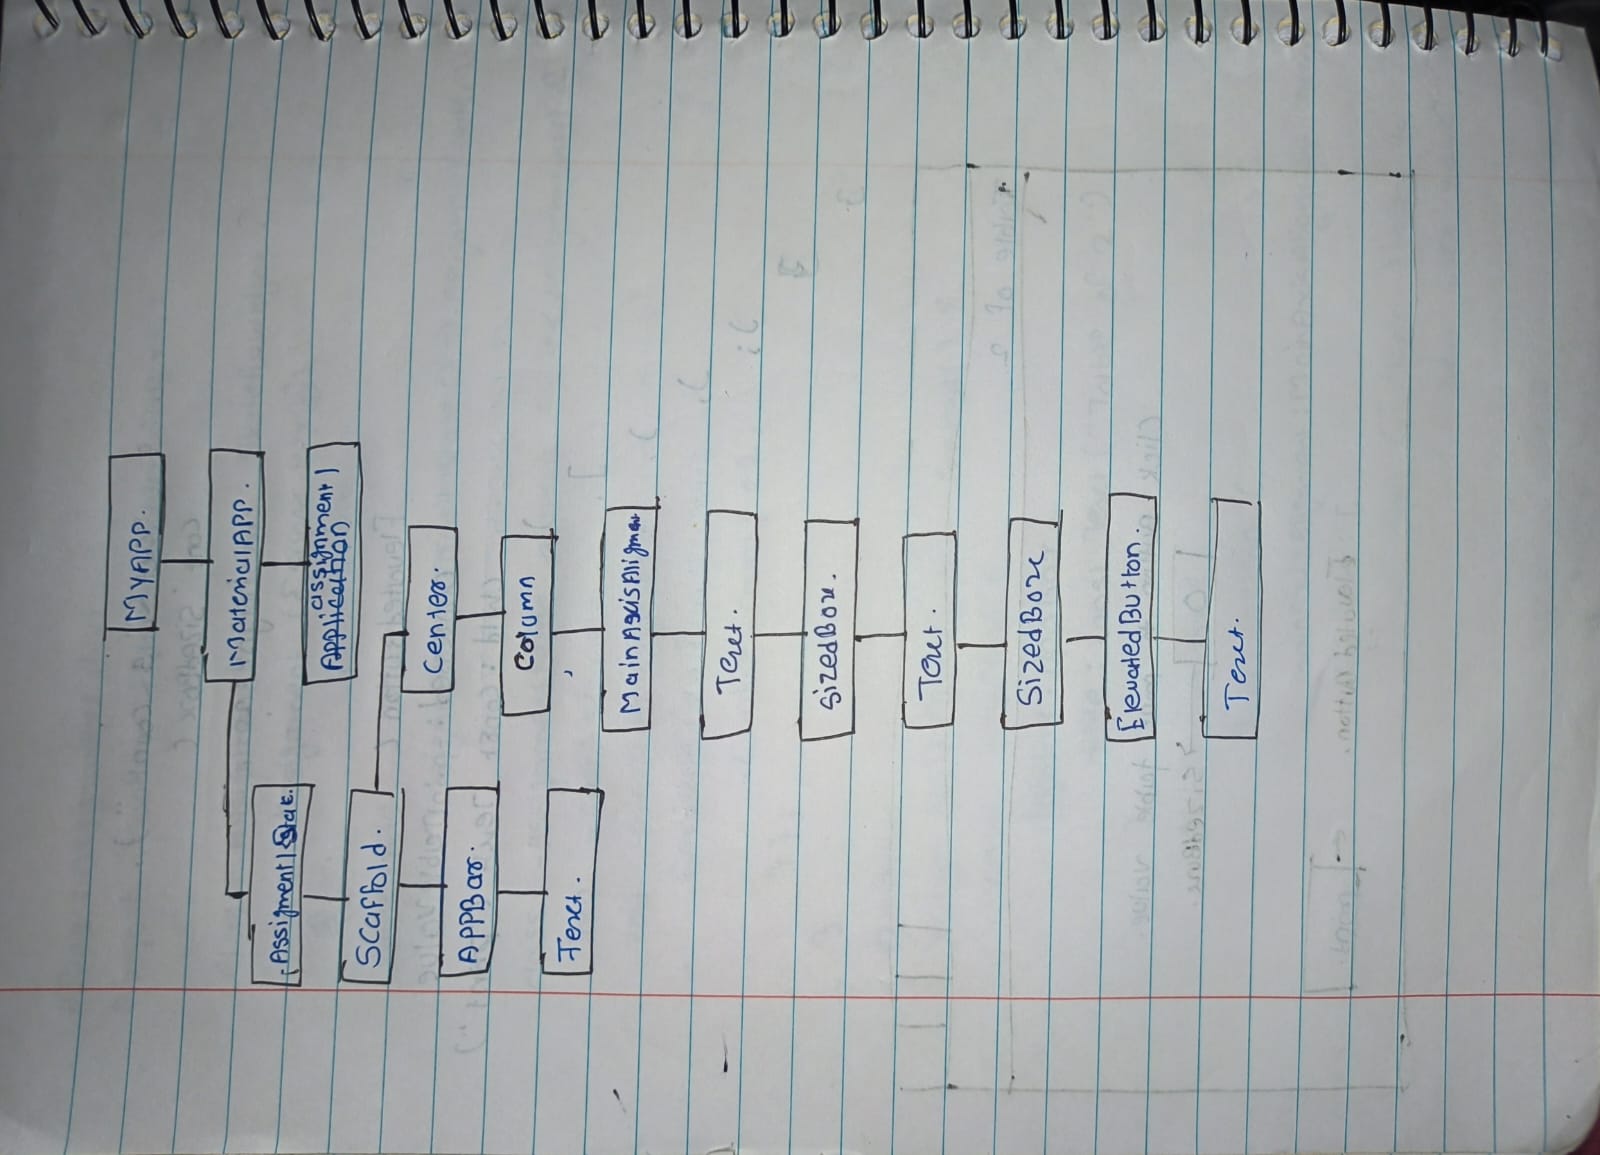 MYAPP.
MaterialAPP.
assignment1
Application
Assigment1State.
Scaffold.
Center.
APPBar.
Column
Text.
MainAxisAligment
Text.
SizedBox.
Text.
SizedBox
ElevatedButton.
Text.